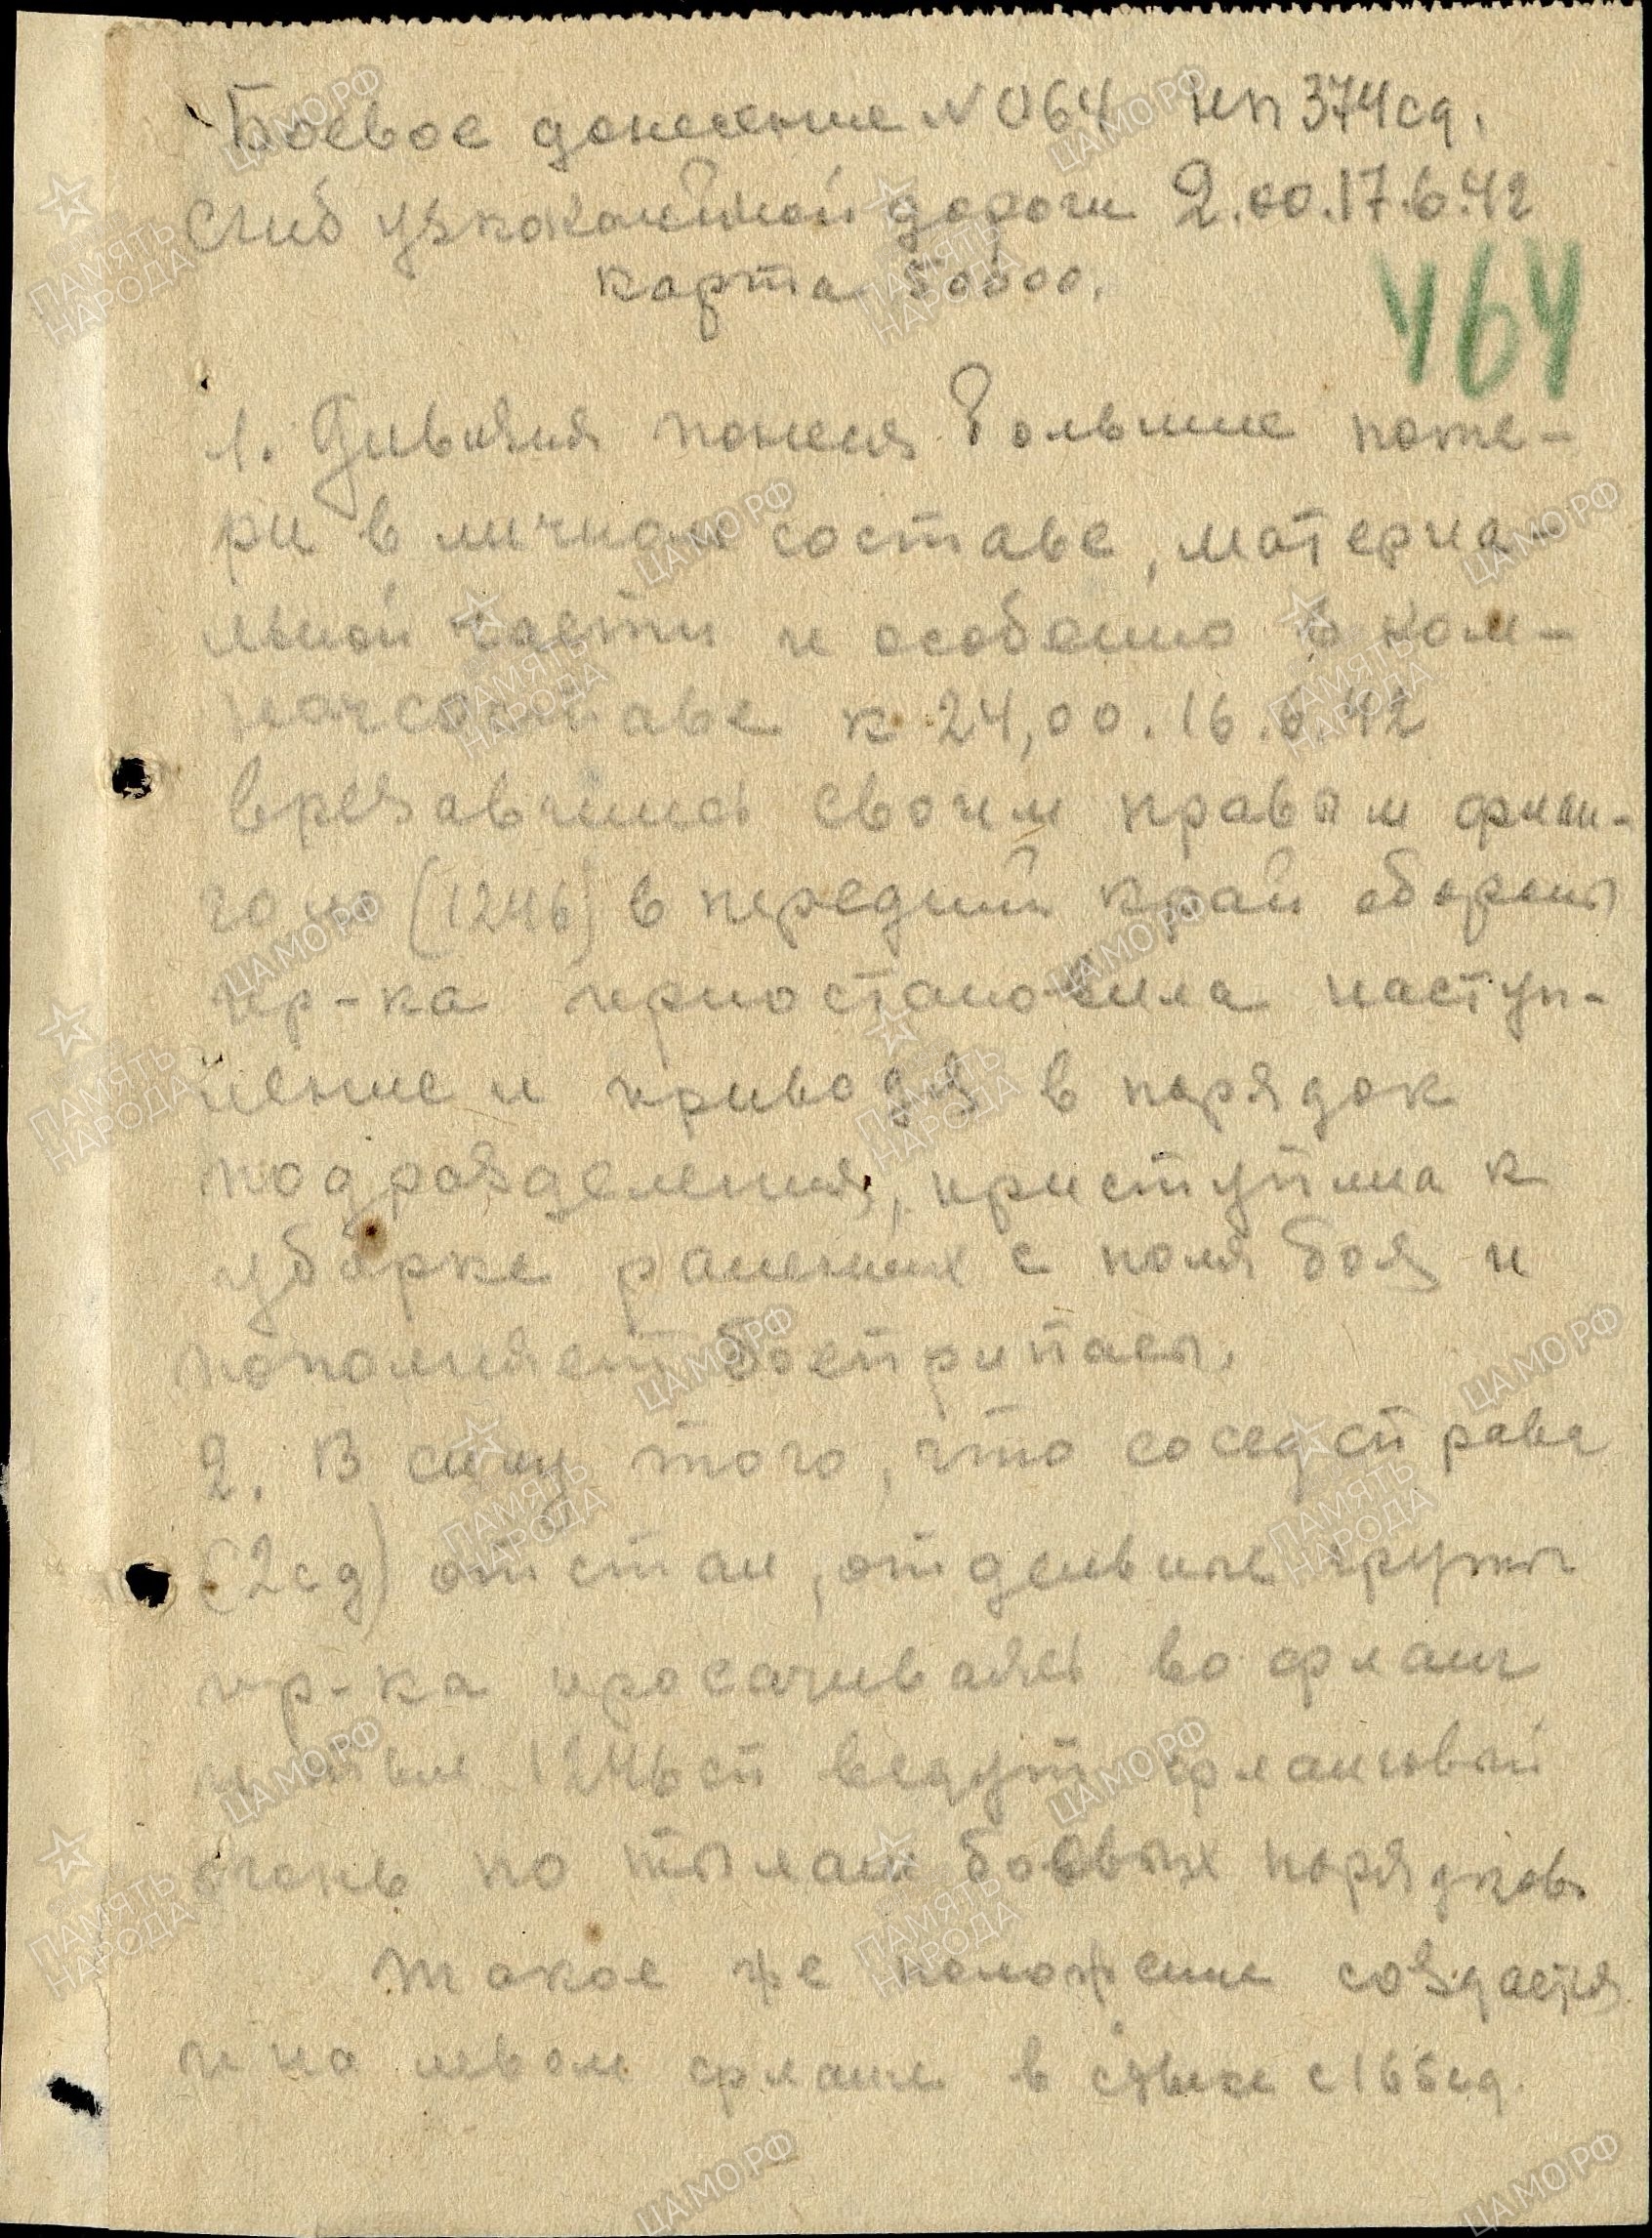 Боевое донесение № 064 нп 374 сд.
Сгиб узкоколейной дороги 2.00.17.6.42
карта 50000.
464
1. Дивизия понеся большие поте-
ри в личном составе, материа-
льной части и особенно в ком-
начсоставе к 24,00.16.6.42
врезавшись своим правым флан-
гом (1246) в передний край обороны
пр-ка приостановила наступ-
ление и приводя в порядок
подразделения, приступила к
уборке раненых с поля боя и
пополняет боеприпасы.
2. В силу того, что сосед справа
(2сд) отстал, отдельные группы
пр-ка просачиваясь во фланг
и тыл 1246сп ведут фланговый
огонь по тылам боевых порядков.
Такое же положение создается
и на левом фланге в стыке с 165сд.